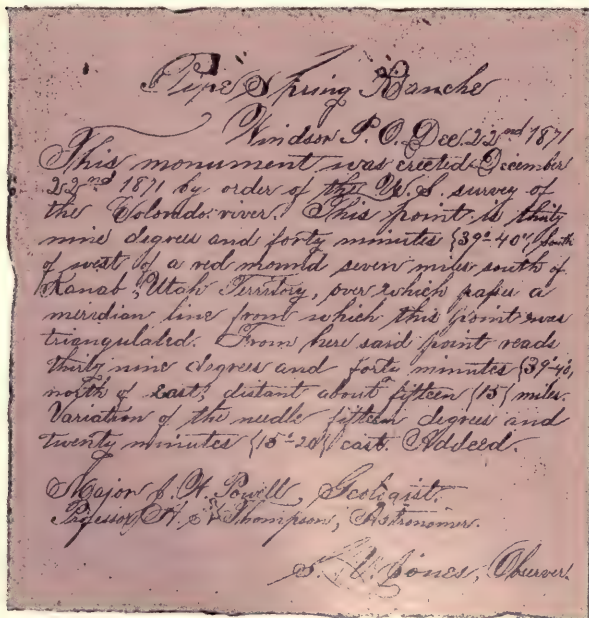 Pipe Spring Ranche
Windsor P. O. Dec. 22nd 1871
This monument was erected December
22nd 1871 by order of the U. S. survey of
the Colorado river. This point is thirty
nine degrees and forty minutes {39°-40'} South
of west of a red mound seven miles south of
Kanab, Utah Territory, over which passes a
meridian line from which this point was
triangulated. From here said point reads
thirty nine degrees and forty minutes {39°-40'}
north of East, distant about fifteen {15} miles.
Variation of the needle fifteen degrees and
twenty minutes {15°-20'} east.
Major J. W. Powell, Geologist.
Professor A. H. Thompson, Astronomer.
S. V. Jones, Observer.